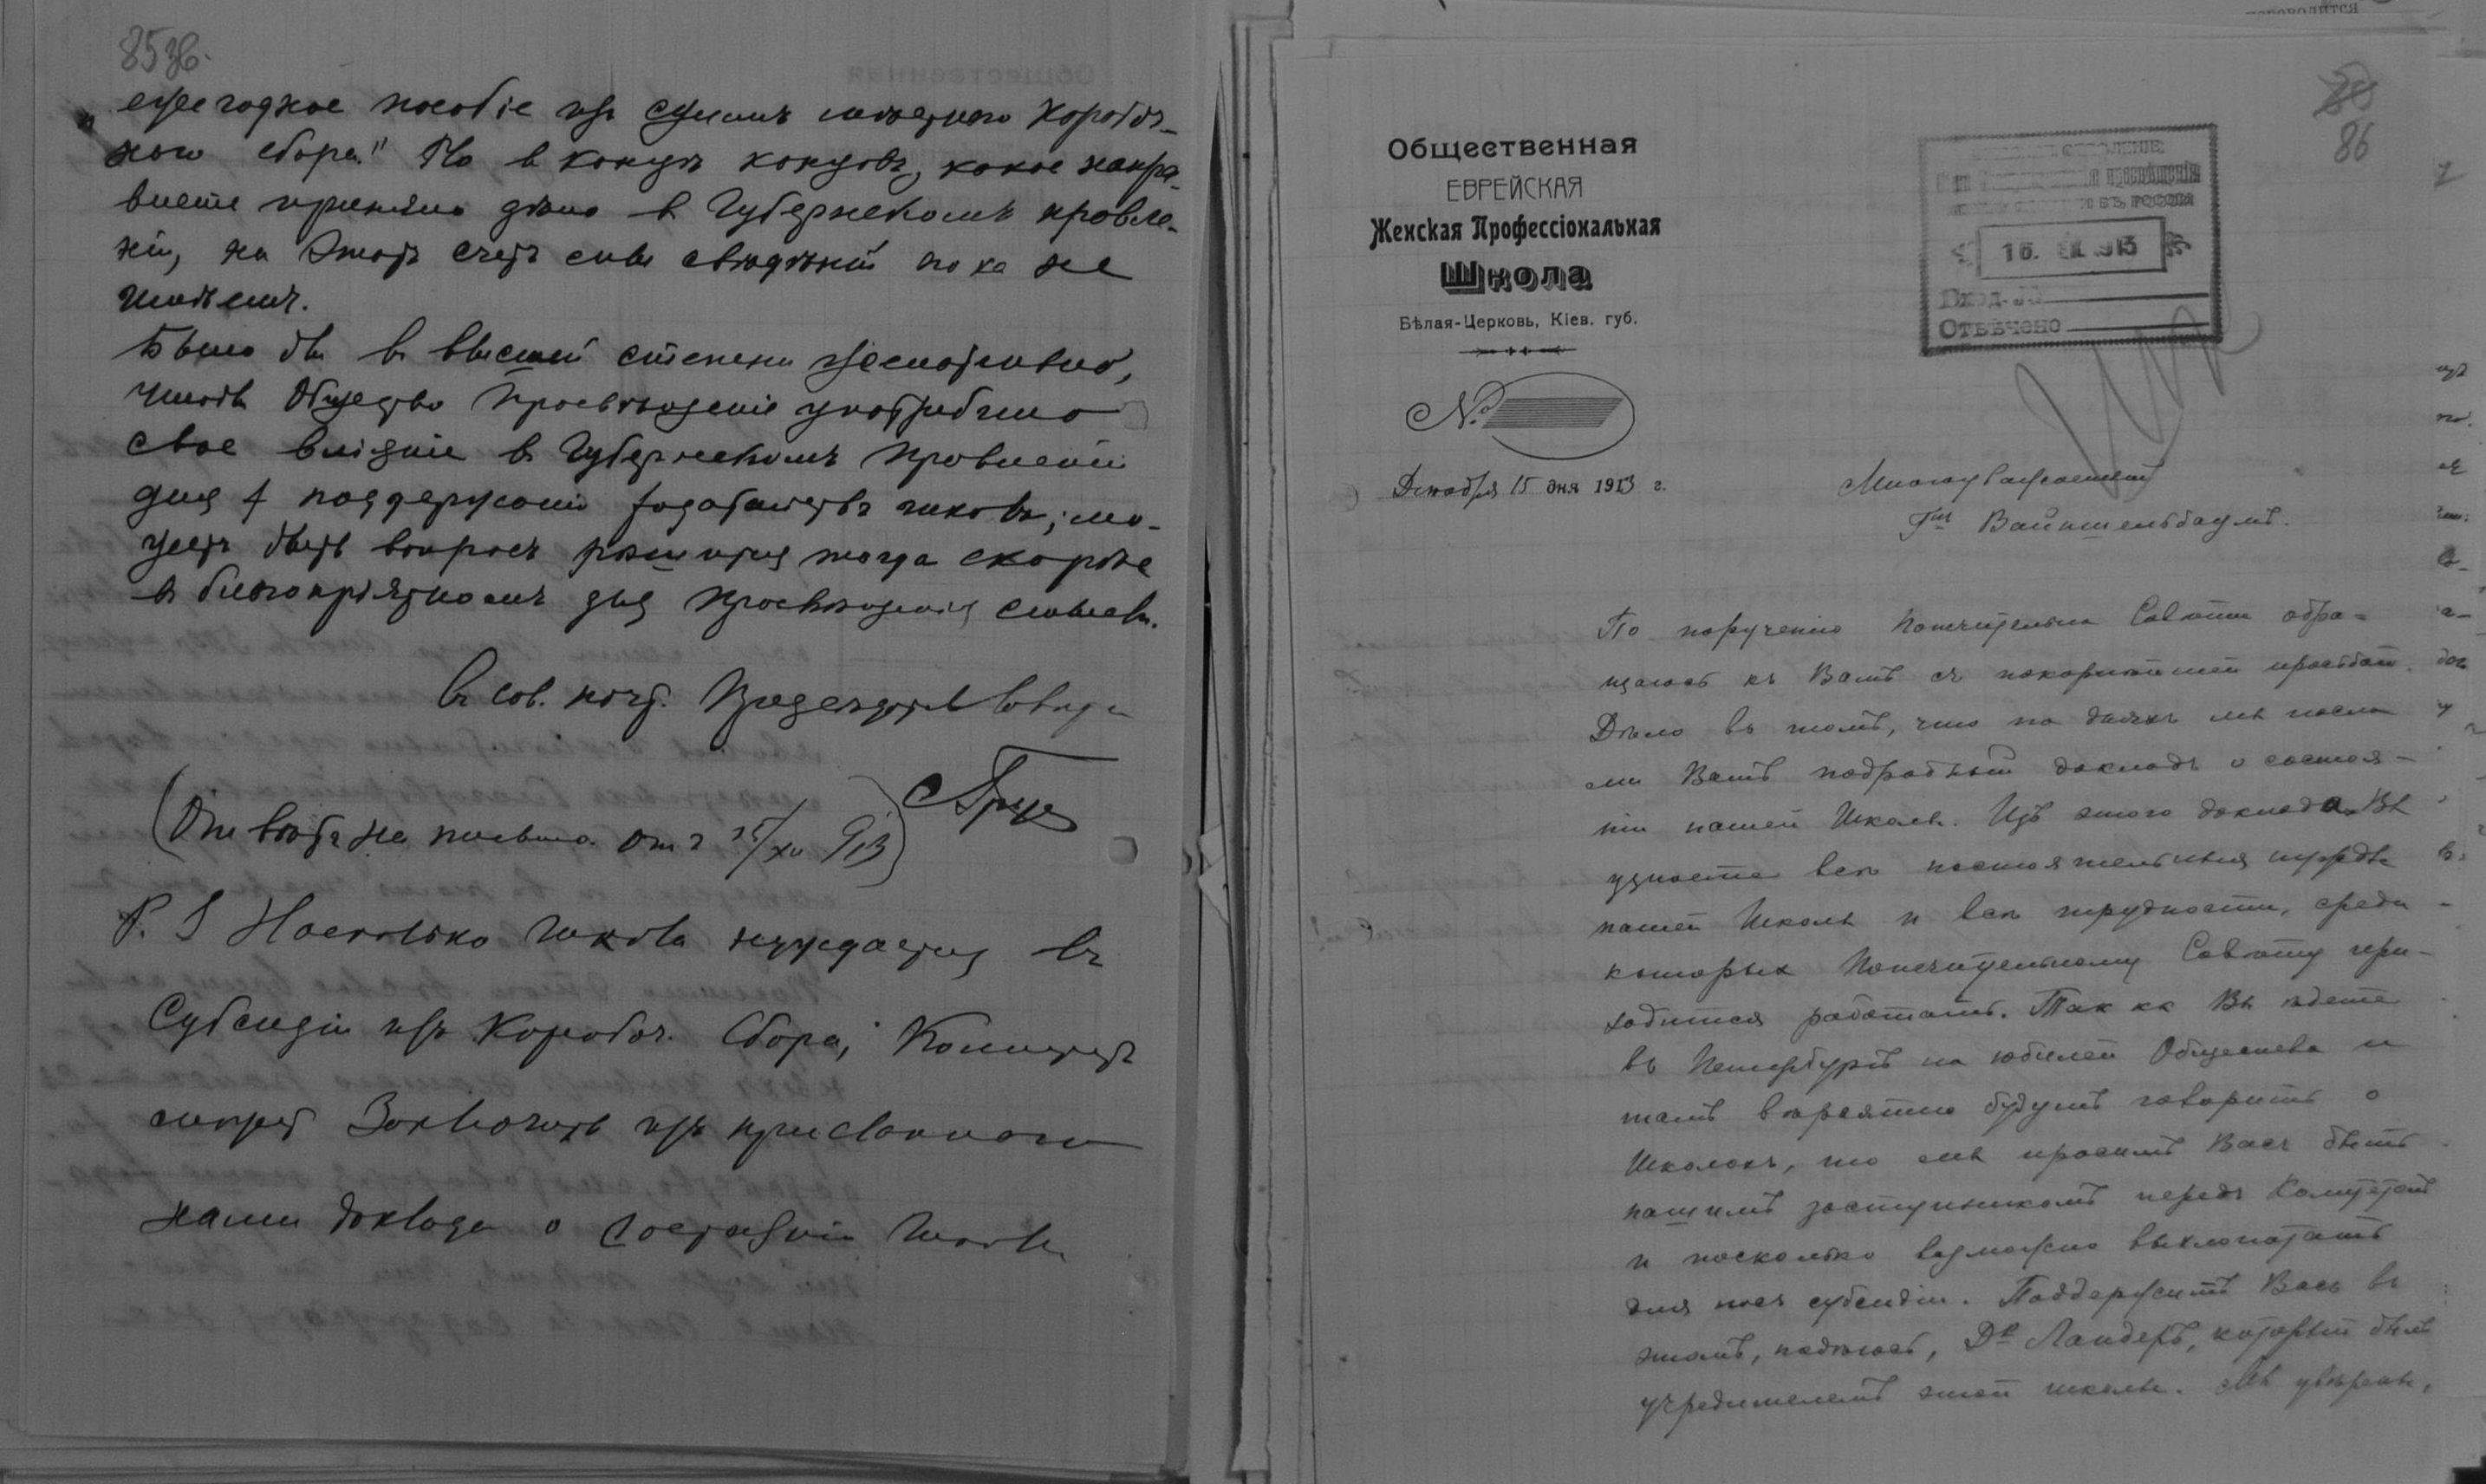 85 об.
ежегодное пособіе изъ суммъ мѣстнаго коробоч-
наго сбора." Но в концѣ концовъ, какое направ-
леніе приняло дѣло в Губернскомъ правле-
ніи, на этотъ счетъ мы свѣдѣній пока не
имѣемъ.
Было бы въ высшей степени желательно,
чтобы Общество Просвѣщенія употребило
свое вліяніе въ Губернскомъ Правленіи
для поддержанія ходатайства школы; мо-
жетъ быть вопросъ рѣшится тогда скорѣе
въ благопріятномъ для Просвѣщенія смыслѣ.
Въ сов. почт. Предсѣдатель Совѣта
(Отвѣтъ на письмо отъ 25/XI 913)
P. S Насколько школа нуждается въ
Субсидіи изъ Коробоч. Сбора, Комитетъ
можетъ Заключить изъ присланнаго
нами доклада о состояніи школы
86
Общественная
ЕВРЕЙСКАЯ
Женская Профессіональная
Школа
Бѣлая-Церковь, Кіев. губ.
№
Декабря 15 дня 1913 г.
16. XII. 1913
Вход. №
Отвѣчено
Многоуважаемый
Г-нъ Вайншельбаумъ.
По порученію Попечительн. Совѣта обра-
щаюсь къ Вамъ съ покорнѣйшей просьбой.
Дѣло въ томъ, что на дняхъ мы посла
ли Вамъ подробный докладъ о состоя-
ніи нашей Школы. Изъ этого доклада Вы
узнаете всѣ настоятельныя нужды
нашей Школы и всѣ трудности, среди
которыхъ Попечительному Совѣту при-
ходится работать. Так как Вы ѣдете
въ Петербургъ на юбилей Общества и
тамъ вѣроятно будутъ говорить о
Школахъ, то мы просимъ Васъ быть
нашимъ заступникомъ передъ Комитетомъ
и насколько возможно выхлопотать
для насъ субсидіи. Поддержитъ Васъ въ
этомъ, надѣюсь, Д-ръ Ландеръ, который былъ
учредителемъ этой школы. Мы увѣрены,